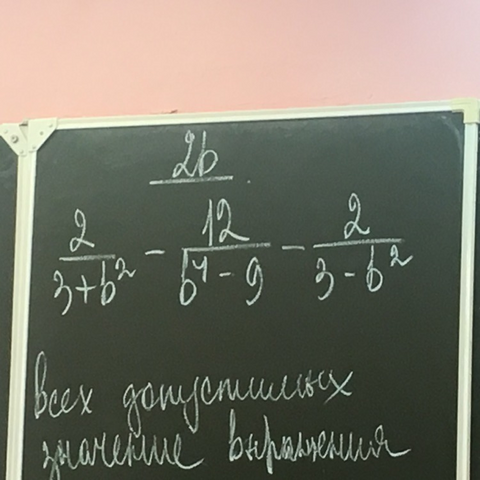 2b
2/(3+b²) - 12/(b⁴-9) - 2/(3-b²)
всех допустимых
значение выражения